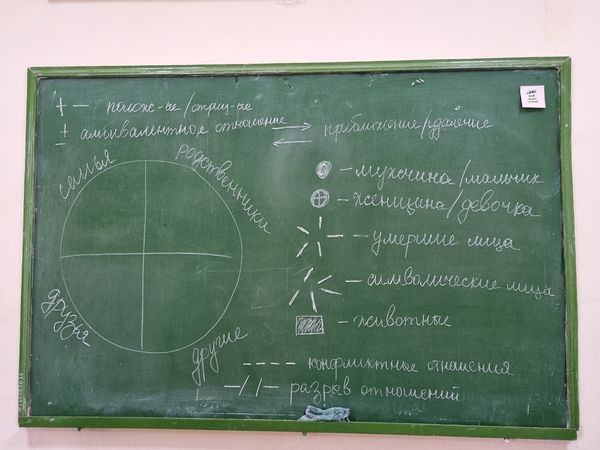 + - полож-ие/отриц-ие
± амбивалентное отношение
приближение/удаление
семья
родственники
друзья
другие
- мужчина/мальчик
- женщина/девочка
- умершие лица
- символические лица
- животные
---- конфликтные отношения
-//- разрыв отношений